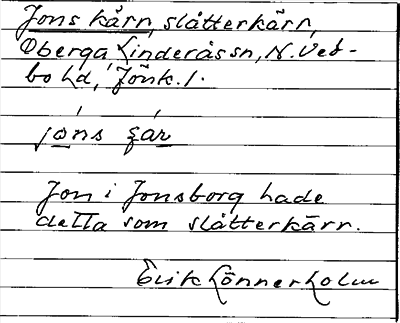 Jons kärr, slåtterkärr,
Öberga Linderås sn, N. Ved-
bo hd, Jönk. l.
jòns çár
Jon i Jonsborg hade
detta som slåtterkärr.
Erik Lönnerholm